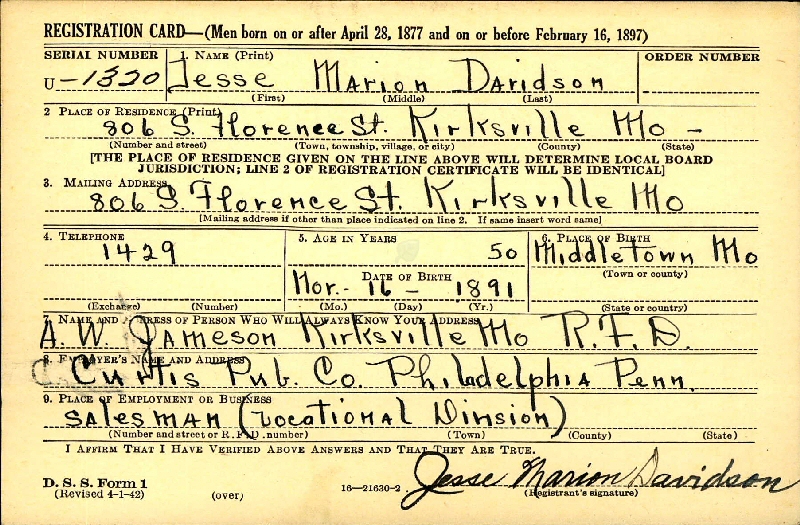 REGISTRATION CARD—(Men born on or after April 28, 1877 and on or before February 16, 1897)
SERIAL NUMBER 1. NAME (Print) ORDER NUMBER
U-1320 Jesse Marion Davidson
(First) (Middle) (Last)
2 PLACE OF RESIDENCE (Print)
806 S. Florence St. Kirksville Mo -
(Number and street) (Town, township, village, or city) (County) (State)
[THE PLACE OF RESIDENCE GIVEN ON THE LINE ABOVE WILL DETERMINE LOCAL BOARD
JURISDICTION; LINE 2 OF REGISTRATION CERTIFICATE WILL BE IDENTICAL]
3. MAILING ADDRESS
806 S. Florence St. Kirksville Mo
[Mailing address if other than place indicated on line 2. If same insert word same]
4. TELEPHONE 5. AGE IN YEARS 6. PLACE OF BIRTH
1429 50 Middletown Mo
DATE OF BIRTH (Town or county)
Nov. - 16 - 1891
(Exchange) (Number) (Mo.) (Day) (Yr.) (State or country)
7. NAME AND ADDRESS OF PERSON WHO WILL ALWAYS KNOW YOUR ADDRESS
A. W. Jameson Kirksville Mo R.F.D.
8. EMPLOYER'S NAME AND ADDRESS
Curtis Pub. Co. Philadelphia Penn.
9. PLACE OF EMPLOYMENT OR BUSINESS
Salesman (Vocational Division)
(Number and street or R. F. D. number) (Town) (County) (State)
I AFFIRM THAT I HAVE VERIFIED ABOVE ANSWERS AND THAT THEY ARE TRUE.
D. S. S. Form 1
(Revised 4-1-42) (over) 16—21630-2 Jesse Marion Davidson
(Registrant's signature)